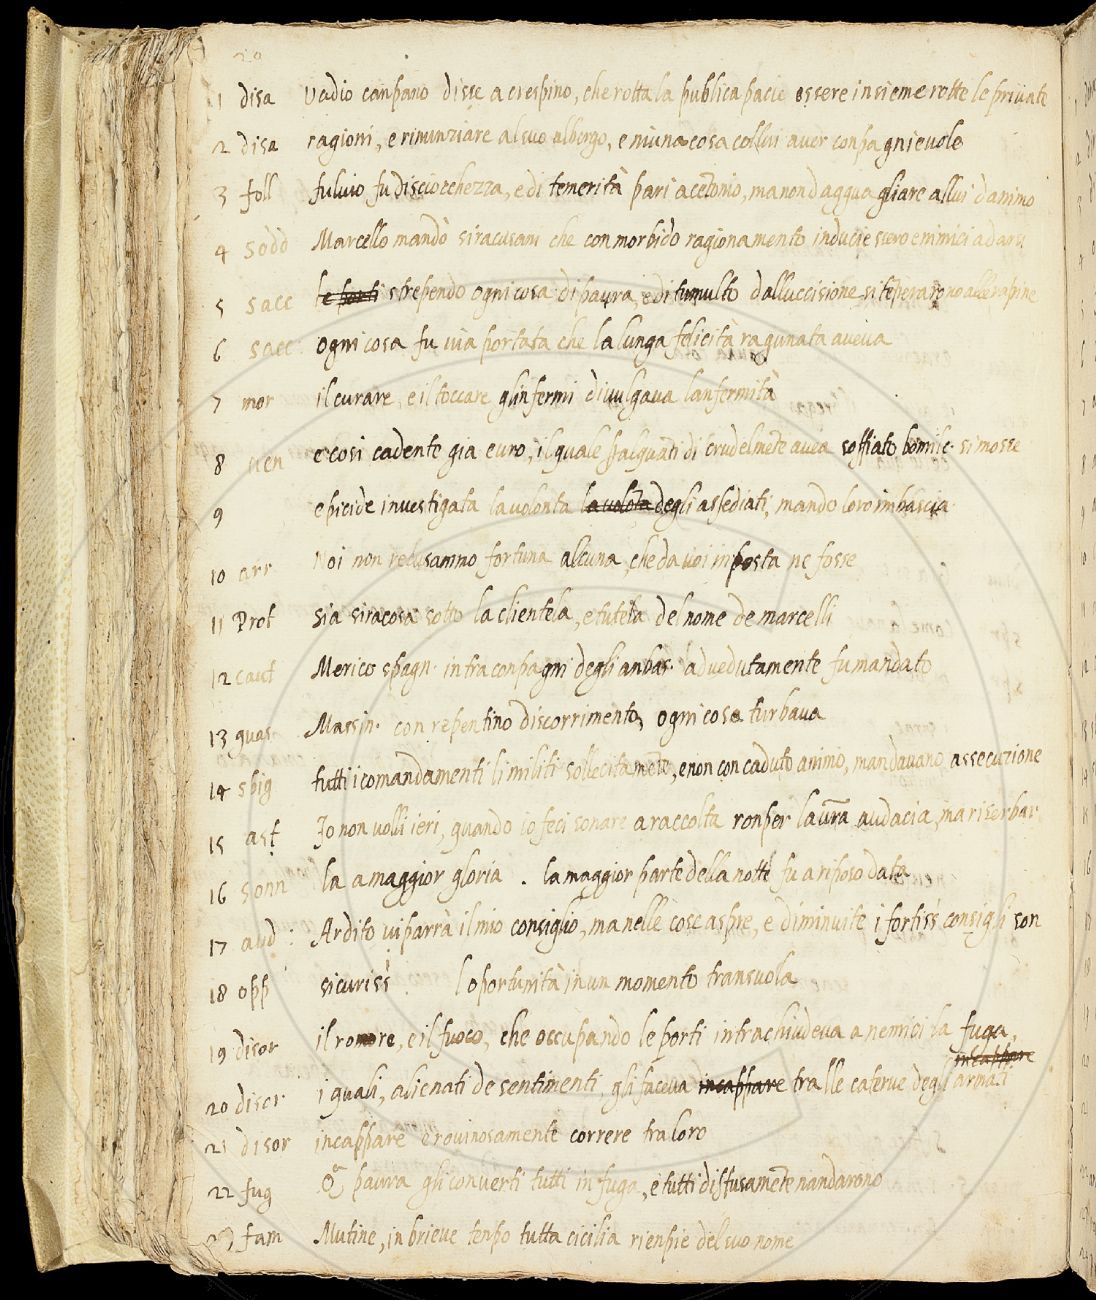 20
1 disa Vadio canpano disse a crespino, che rotta la publica pacie essere insieme rotte le priuate
2 disa ragioni, e rinunziare al suo albergo, e niuna cosa collui auer conpagnieuole
3 foll fuluio fu di scioechezza, e di temerità pari a cetonio, ma non d agguagliare allui d animo
4 sodd Marcello mandò siracusani che con morbido ragionamento
5 sacc le porti strependo ogni cosa di paura, e di tumulto dalluccisione si teperarono alle rapine
6 sacc: ogni cosa fu uia portata che la lunga felicità ragunata aueua
7 mor il curare, e il toccare gli nfermi diuulgaua lanfermità
8 uen e cosi cadente gia euro, il quale di crudelmēte auea soffiato bomilc. si mosse
9 epicide inuestigata la uolonta la uolōta degli assediati, mando loro inbascia
10 arr Noi non recusammo fortuna alcuna, che da uoi inposta ne fosse
11 Prot sia siracosa sotto la clientela, e tutela del nome de marcelli
12 caut Merico spagn. infra conpagni degli anbas. aduedutamente fu mandato
13 guas. Massin. con repentino discorrimento, ogni cosa turbaua
14 sbig tutti i comandamenti li militi sollecitamēte, e non con caduto animo, mandauano assecuzione
15 ast Jo non uolli ieri, quando io feci sonare a raccolta ronper la ur̄a audacia, ma riserbar
16 sonn la a maggior gloria . la maggior parte della notte fu a riposo data
17 aud: Ardito ui parrà il mio consiglio, ma nelle cose aspre, e diminuite i fortiss consigli son
18 opp siculiss. l oportunità in un momento transuola
19 disor il romore, e il fuoco, che occupando le porti intrachiudeua a nemici la fuga,
incappare
20 disor i quali, alienati de sentimenti, gli faceua incappare tra lle caterue degl armati
21 disor incappare e rouinosamente correre tra loro
22 fug Q̄ paura gli conuerti tutti in fuga, e tutti disfusamēte nandarono
23 fam Mutine, in brieue tenpo tutta cicilia rienpie del suo nome